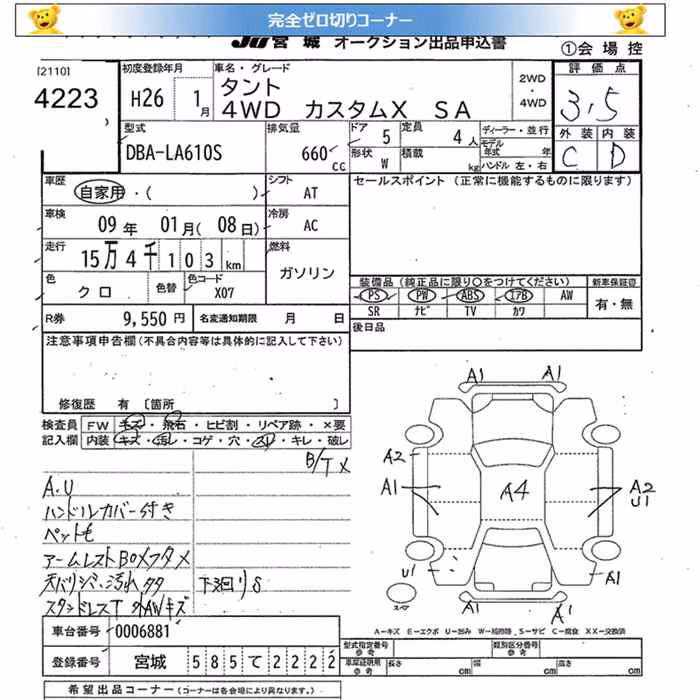 完全ゼロ切りコーナー
JU 宮城 オークション出品申込書
①会場控
[2110]
4223
初度登録年月
H26 1月
車名・グレード
タント
4WD カスタムX SA
2WD
・
4WD
評価点
3,5
外装 内装
C D
型式
DBA-LA610S
排気量
660cc
ドア 5
定員 4人
形状 W
積載 kg
ディーラー・並行
モデル年式 年
ハンドル 左・右
車歴
自家用・( )
シフト AT
セールスポイント (正常に機能するものに限ります)
車検
09年 01月(08日)
冷房 AC
走行
15万4千103km
燃料
ガソリン
色
クロ
色替
色コード
X07
装備品 (純正品に限り○をつけてください)
新車保証書
PS PW ABS エアB AW
SR ナビ TV カワ
有・無
R券 9,550円
名変通知期限 月 日
後日品
注意事項申告欄(不具合内容等は具体的に記入して下さい)
修復歴 有 〔箇所 〕
検査員 FW キズ・飛石・ヒビ割・リペア跡・×要
記入欄 内装 キズ・汚れ・コゲ・穴・スレ・キレ・破レ
B/T メ
A.U
ハンドルカバー付き
ペット毛
アームレストBOXフタメ
天バリシミ、汚れタタ
下廻りS
スタッドレスT 外AWキズ
A1 A1
A2
A1
A4
A2
U1
U1
A1
A1 A1
スペア
A-キズ E-エクボ U-凹み W-補修跡 S-サビ C-腐食 XX-交換済
車台番号 0006881
登録番号 宮城 585て2222
型式指定番号 参考
類別区分番号 参考
車庫証明用 参考
長さ cm 幅 cm 高さ cm
希望出品コーナー (コーナーは各会場により異なります。)